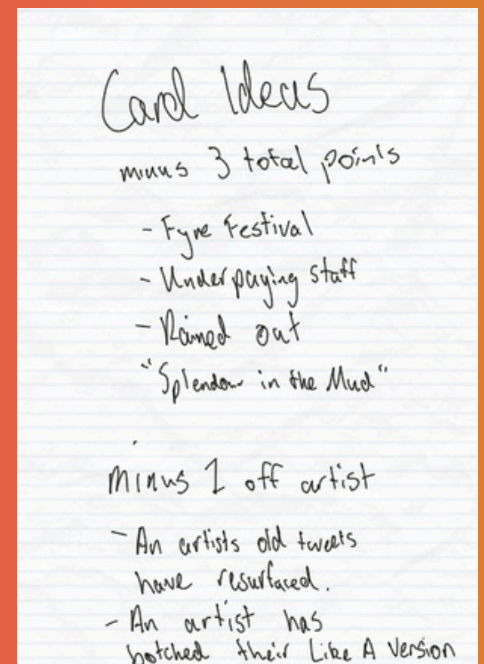 Card Ideas
minus 3 total points
- Fyre Festival
- Underpaying staff
- Rained out
"Splendour in the Mud"
minus 1 off artist
- An artists old tweets
have resurfaced.
- An artist has
botched their Like A Version